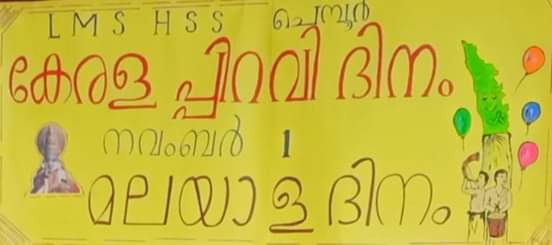 L M S H S S ചെമ്പൂർ
കേരള പ്പിറവി ദിനം
നവംബർ 1
മലയാള ദിനം